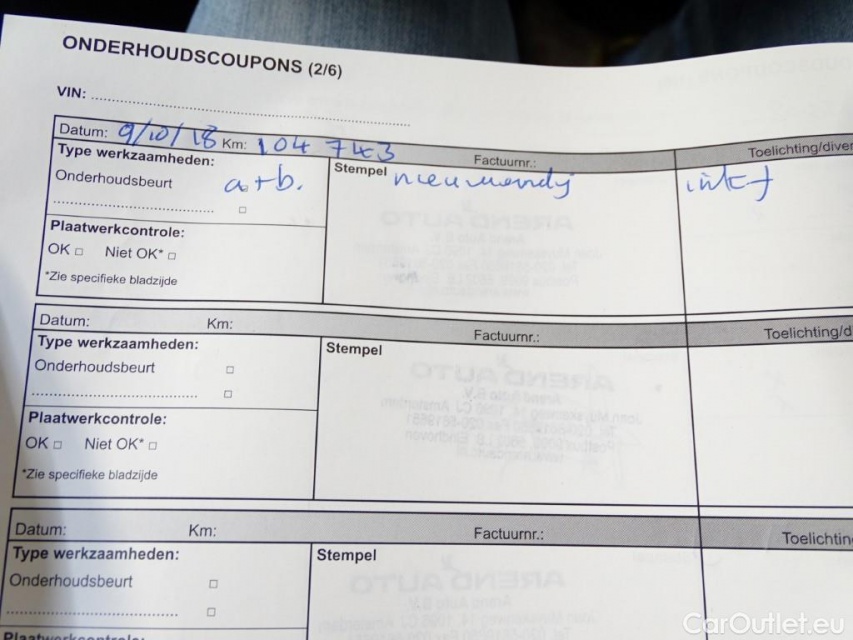 ONDERHOUDSCOUPONS (2/6)
VIN:
Datum: 9/10/18 Km: 104 743 Factuurnr.: Toelichting/diver
Type werkzaamheden: Stempel
Onderhoudsbeurt a+b.
Plaatwerkcontrole:
OK □ Niet OK* □
*Zie specifieke bladzijde
Datum: Km: Factuurnr.: Toelichting/d
Type werkzaamheden: Stempel
Onderhoudsbeurt □
□
Plaatwerkcontrole:
OK □ Niet OK* □
*Zie specifieke bladzijde
Datum: Km: Factuurnr.: Toelichting
Type werkzaamheden: Stempel
Onderhoudsbeurt □
□
Plaatwerkcontrole:
CarOutlet.eu